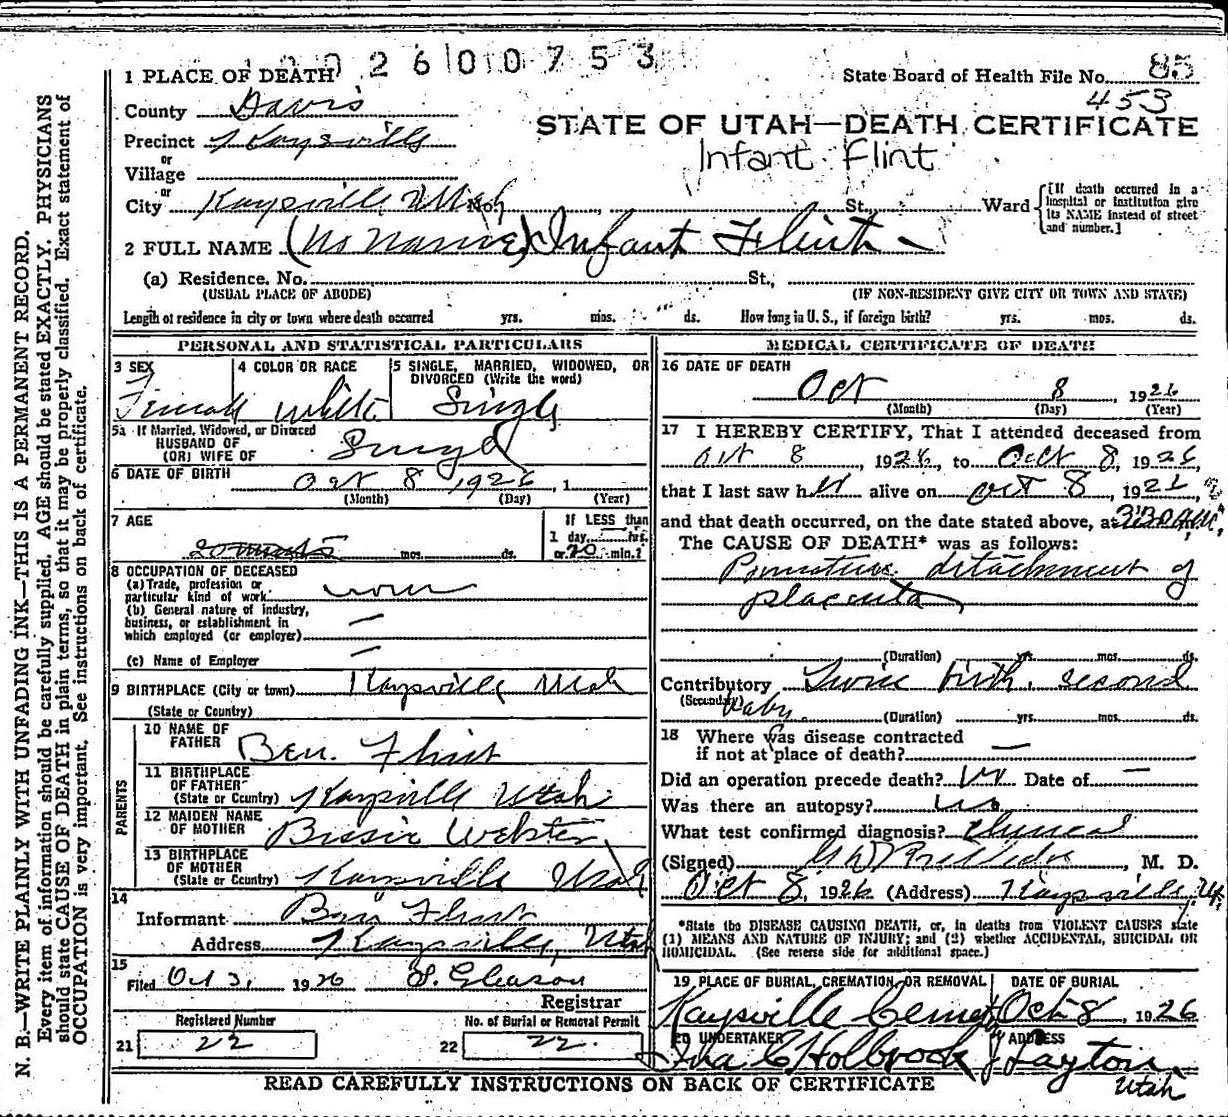 0 2 6 0 0 7 5 3
1 PLACE OF DEATH
State Board of Health File No. 85
453
County Davis
STATE OF UTAH—DEATH CERTIFICATE
Precinct Kaysville
Infant Flint
or
Village
or
City Kaysville Utah No. St. Ward
[If death occurred in a hospital or institution give its NAME instead of street and number.]
2 FULL NAME (No Name) Infant Flint
(a) Residence. No. St.,
(USUAL PLACE OF ABODE) (IF NON-RESIDENT GIVE CITY OR TOWN AND STATE)
Length of residence in city or town where death occurred yrs. mos. ds. How long in U. S., if foreign birth? yrs. mos. ds.
PERSONAL AND STATISTICAL PARTICULARS
3 SEX 4 COLOR OR RACE 5 SINGLE, MARRIED, WIDOWED, OR DIVORCED (Write the word)
Female White Single
5a If Married, Widowed, or Divorced
HUSBAND OF
(OR) WIFE OF Single
6 DATE OF BIRTH Oct 8 1926, 1
(Month) (Day) (Year)
7 AGE
If LESS than
1 day hrs.
or 20 min.?
mos. ds.
8 OCCUPATION OF DECEASED
(a) Trade, profession or
particular kind of work none
(b) General nature of industry,
business, or establishment in
which employed (or employer) —
(c) Name of Employer —
9 BIRTHPLACE (City or town) Kaysville Utah
(State or Country)
PARENTS
10 NAME OF
FATHER Ben. Flint
11 BIRTHPLACE
OF FATHER
(State or Country) Kaysville Utah
12 MAIDEN NAME
OF MOTHER Bessie Webster
13 BIRTHPLACE
OF MOTHER
(State or Country) Kaysville Utah
14
Informant Ben Flint
Address Kaysville, Utah
15
Filed Oct 1926 S. Gleason
Registrar
Registered Number No. of Burial or Removal Permit
21 22 22 22.
MEDICAL CERTIFICATE OF DEATH
16 DATE OF DEATH
Oct 8, 1926
(Month) (Day) (Year)
17 I HEREBY CERTIFY, That I attended deceased from
Oct 8, 1926, to Oct 8, 1926,
that I last saw her alive on Oct 8, 1926,
and that death occurred, on the date stated above, at
The CAUSE OF DEATH* was as follows:
Premature detachment of
placenta
(Duration) yrs. mos. ds.
Contributory Twin birth. second
(Secondary) baby.
(Duration) yrs. mos. ds.
18 Where was disease contracted
if not at place of death? —
Did an operation precede death? no Date of —
Was there an autopsy? no
What test confirmed diagnosis? Clinical
(Signed) , M. D.
Oct 8, 1926 (Address) Kaysville, Ut.
*State the DISEASE CAUSING DEATH, or, in deaths from VIOLENT CAUSES state
(1) MEANS AND NATURE OF INJURY; and (2) whether ACCIDENTAL, SUICIDAL OR
HOMICIDAL. (See reverse side for additional space.)
19 PLACE OF BURIAL, CREMATION, OR REMOVAL DATE OF BURIAL
Kaysville Cemety Oct 8, 1926
20 UNDERTAKER ADDRESS
Ida C Holbrook Layton,
Utah
READ CAREFULLY INSTRUCTIONS ON BACK OF CERTIFICATE
N. B.—WRITE PLAINLY WITH UNFADING INK—THIS IS A PERMANENT RECORD.
Every item of information should be carefully supplied. AGE should be stated EXACTLY. PHYSICIANS
should state CAUSE OF DEATH in plain terms, so that it may be properly classified. Exact statement of
OCCUPATION is very important. See instructions on back of certificate.